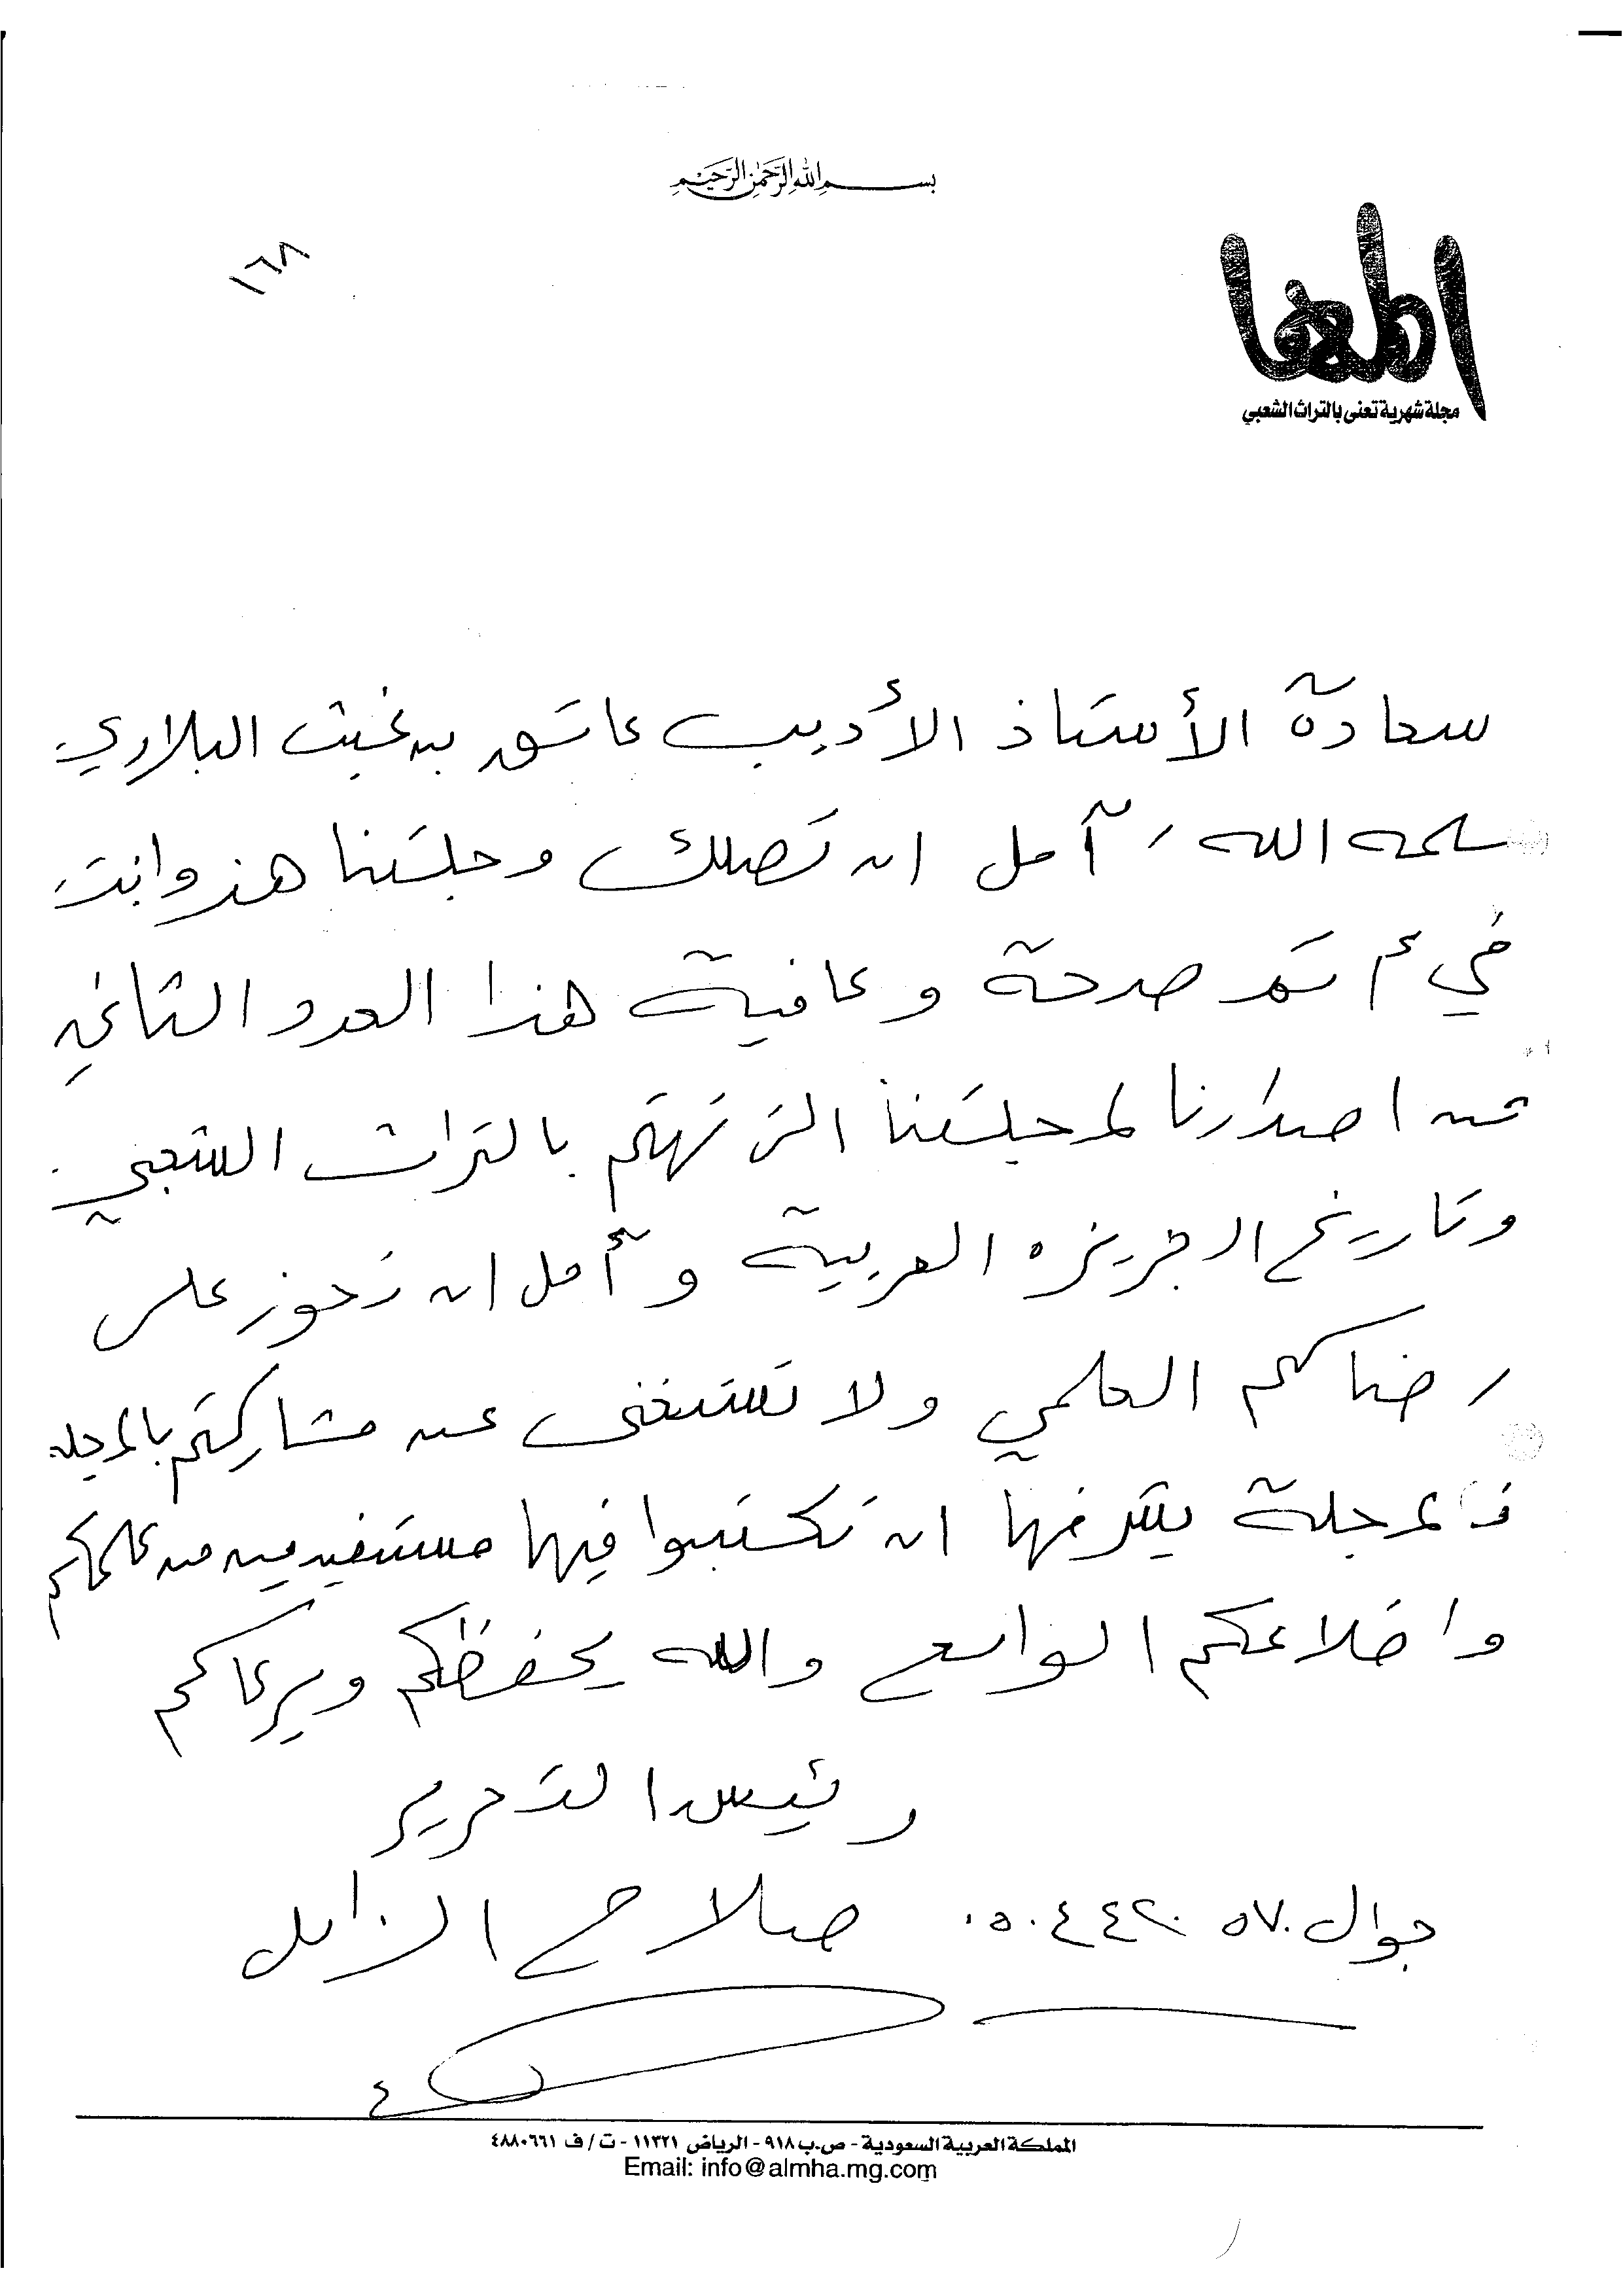 بسم الله الرحمن الرحيم
١٦٨
المها
مجلة شهرية تعنى بالتراث الشعبي
سعادة الأستاذ الأديب عاتق بن غيث البلادي
سلمه الله / آمل ان تصلك مجلتنا هذ وانت
في أتم صحة وعافية هذا العدد الثاني
من اصدارنا لمجلتنا التي تهتم بالتراث الشعبي
وتاريخ الجزيره العربية وآمل ان تحوز على
رضاكم العلمي ولا تستغنى عن مشاركتم بالمجله
فالمجلة يشرفها ان تكتبوا فيها مستفيدين من علمكم
واطلاعكم الواسع والله يحفظكم ويرعاكم
رئيس التحرير
جوال ٠٥٠٤٤٢٠٥٧٠ صلاح الزامل
المملكة العربية السعودية - ص.ب ٩١٨ - الرياض ١١٣٢١ - ت / ف ٤٨٨٠٦٦١
Email: info@almha.mg.com